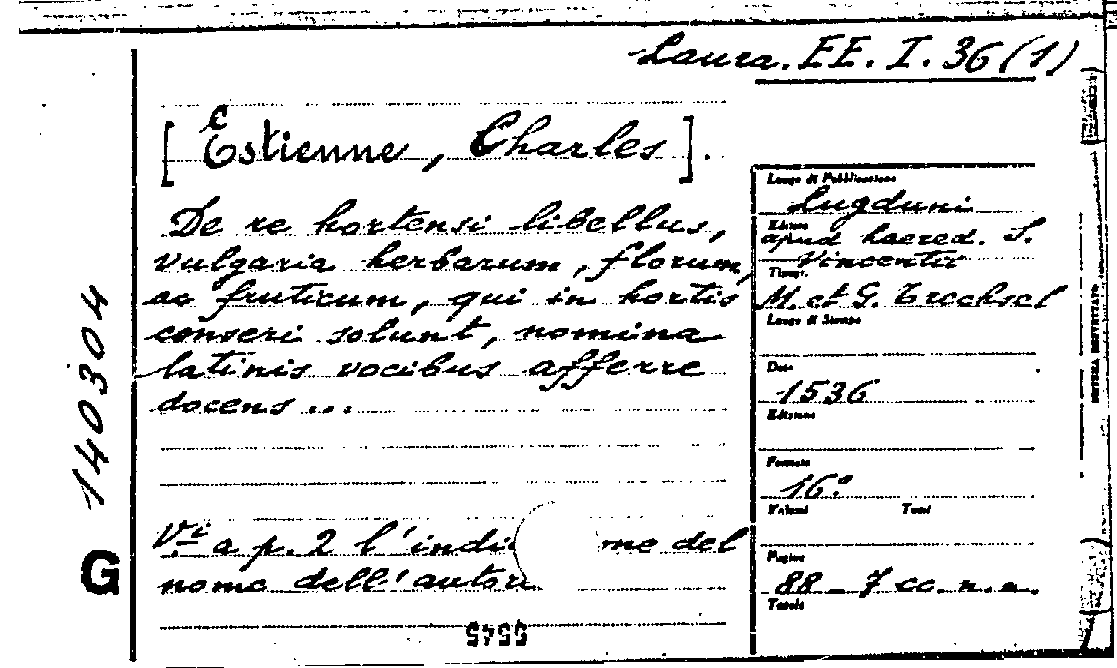 Laura. EE. I. 36 (1)
[Estienne, Charles].
De re hortensi libellus,
vulgaria herbarum, florum,
ac fruticum, qui in hortis
conseri solunt, nomina
latinis vocibus afferre
docens ...
V.i a p. 2 l'indi me del
nome dell'autor
Luogo di Pubblicazione
Lugduni
Editore
apud haered. S.
Vincentii
Tipogr.
M. et G. Trechsel
Luogo di Stampa
Data
1536
Edizione
Formato
16°
Volumi Tomi
Pagine
88 - 7 cc. n. n.
Tavole
G 140304
9545